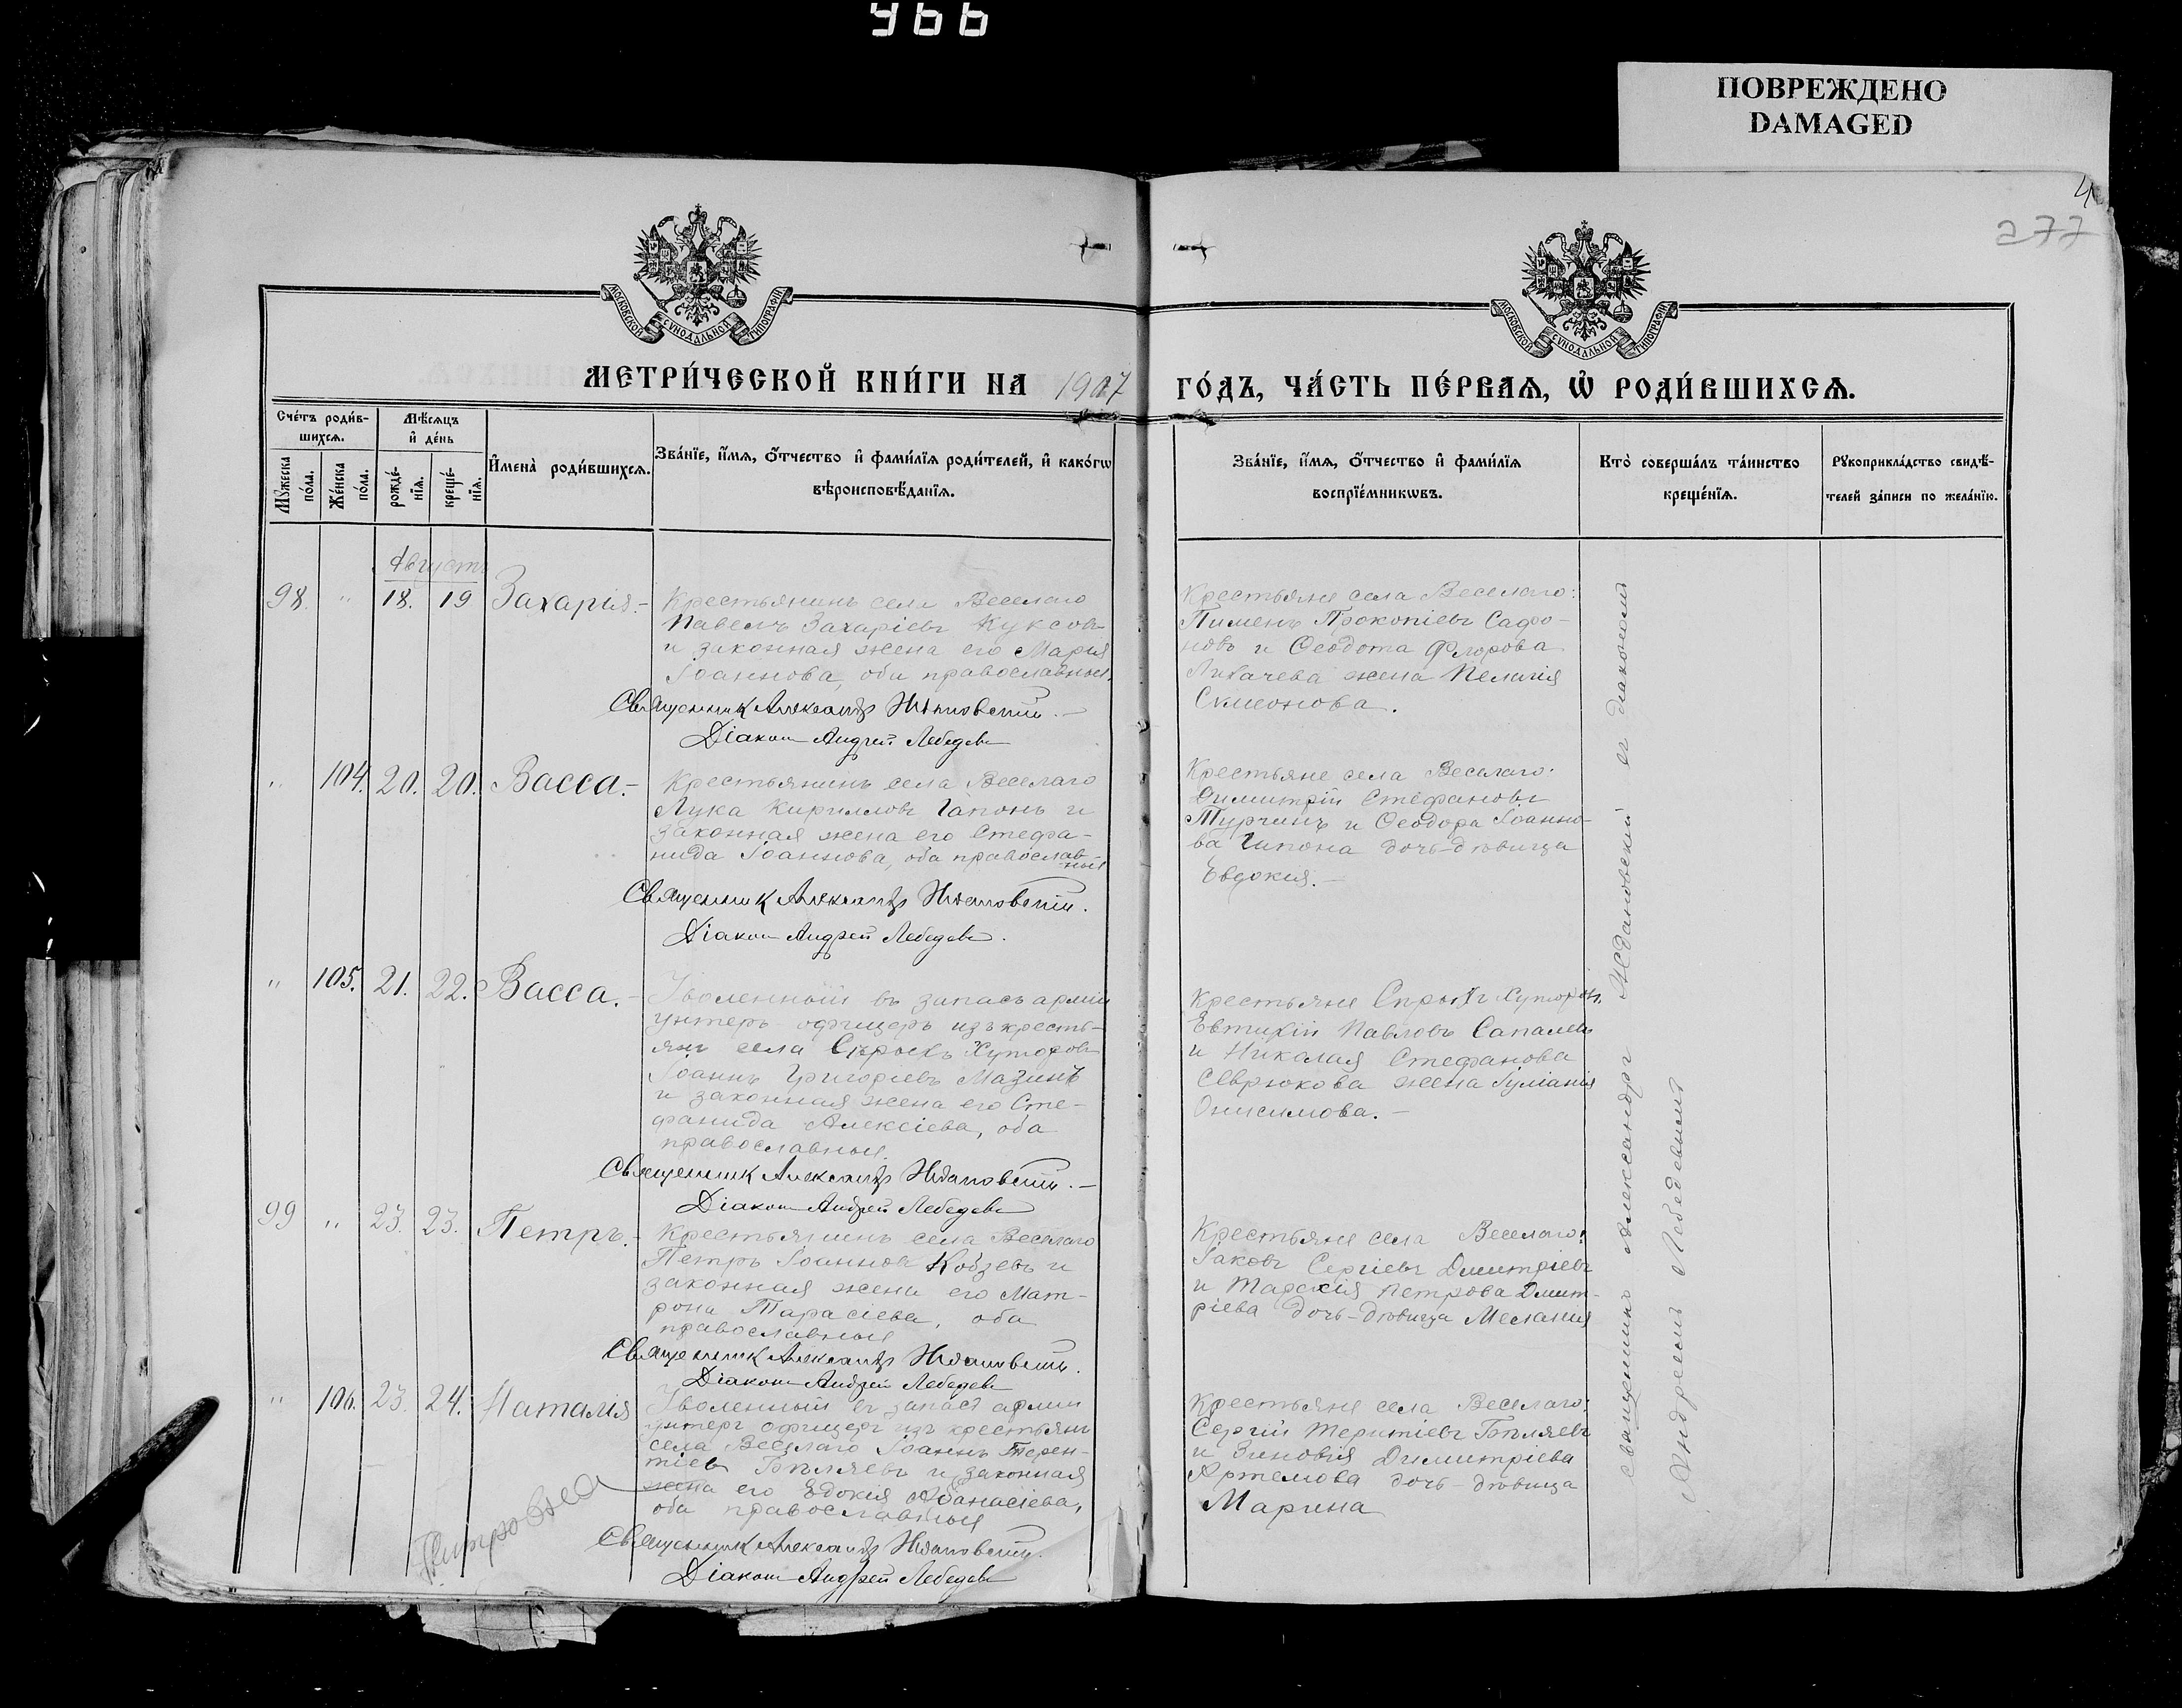 966
ПОВРЕЖДЕНО
DAMAGED
4
277
МОСКОВСКОЙ СѴНОДАЛЬНОЙ ТИПОГРАФІИ
МОСКОВСКОЙ СѴНОДАЛЬНОЙ ТИПОГРАФІИ
МЕТРИ́ЧЕСКОЙ КНИ́ГИ НА 1907
ГО́ДЪ, ЧА́СТЬ ПЕ́РВАѦ, Ѡ҆ РОДИ́ВШИХСѦ.
Сче́тъ роди́в-
шихсѧ.
Мꙋжеска
по́ла.
Же́нска
по́ла.
Мѣ́сѧцъ
и҆ де́нь
рожде́-
нїѧ.
креще́-
нїѧ.
И҆мена̀ роди́вшихсѧ.
Зва́нїе, и҆́мѧ, ѻ҆́тчество и҆ фами́лїѧ роди́телей, и҆ како́гѡ
вѣроисповѣ́данїѧ.
Зва́нїе, и҆́мѧ, ѻ҆́тчество и҆ фами́лїѧ
воспрїе́мникѡвъ.
Кто̀ соверша́лъ та́инство
креще́нїѧ.
Рꙋкоприкла́дство свидѣ́-
телей за́писи по жела́нїю.
Августъ
98. " 18. 19 Захарія.-
Крестьянинъ села Веселаго
Павелъ Захаріевъ Куксовъ
и законная жена его Марія
Іоаннова, оба православные.
Священникъ Александръ Ждановскій.-
Діаконъ Андрей Лебедевъ
Крестьяне села Веселаго:
Пименъ Прокопіевъ Сафо-
новъ и Ѳеодота Флорова
Лихачева жена Пелагія
Симеонова.
" 104. 20. 20. Васса.-
Крестьянинъ села Веселаго
Лука Кирилловъ Гапонъ и
законная жена его Стефа-
нида Іоаннова, оба православ-
ные
Священникъ Александръ Ждановскій.
Діаконъ Андрей Лебедевъ.
Крестьяне села Веселаго:
Димитрій Стефановъ
Турчинъ и Ѳеодора Іоанно-
ва Гапона дочь-дѣвица
Евдокія.-
" 105. 21. 22. Васса.-
Уволенный въ запасъ арміи
унтеръ-офицеръ изъ кресть-
янъ села Сѣрыхъ Хуторовъ
Іоаннъ Григоріевъ Мазинъ
и законная жена его Сте-
фанида Алексіева, оба
православные.
Священникъ Александръ Ждановскій.-
Діаконъ Андрей Лебедевъ
Крестьяне Хуторовъ.
Евтихій Павловъ
и Николая Стефанова
Севрюкова жена Іуліанія
Онисимова.-
99 " 23. 23. Петръ.-
Крестьянинъ села Веселаго
Петръ Іоанновъ Кобзевъ и
законная жена его Мат-
рона Тарасіева, оба
православные
Священникъ Александръ Ждановскій.
Діаконъ Андрей Лебедевъ
Крестьяне села Веселаго:
Іаковъ Сергіевъ Димитріевъ
и Петрова Димит-
ріева дочь-дѣвица Меланія
" 106. 23. 24. Наталія
Уволенный въ запасъ арміи
унтеръ офицеръ изъ крестьянъ
села Веселаго Іоаннъ Терен-
тіевъ и законная
жена его Евдокія Аѳанасіева,
оба православные
Священникъ Александръ Ждановскій.
Діаконъ Андрей Лебедевъ
Крестьяне села Веселаго:
Сергій Терентіевъ
и Зиновія Димитріева
Артемова дочь-дѣвица
Марина
священникъ Александръ Ждановскій съ діакономъ
Андреемъ Лебедевымъ